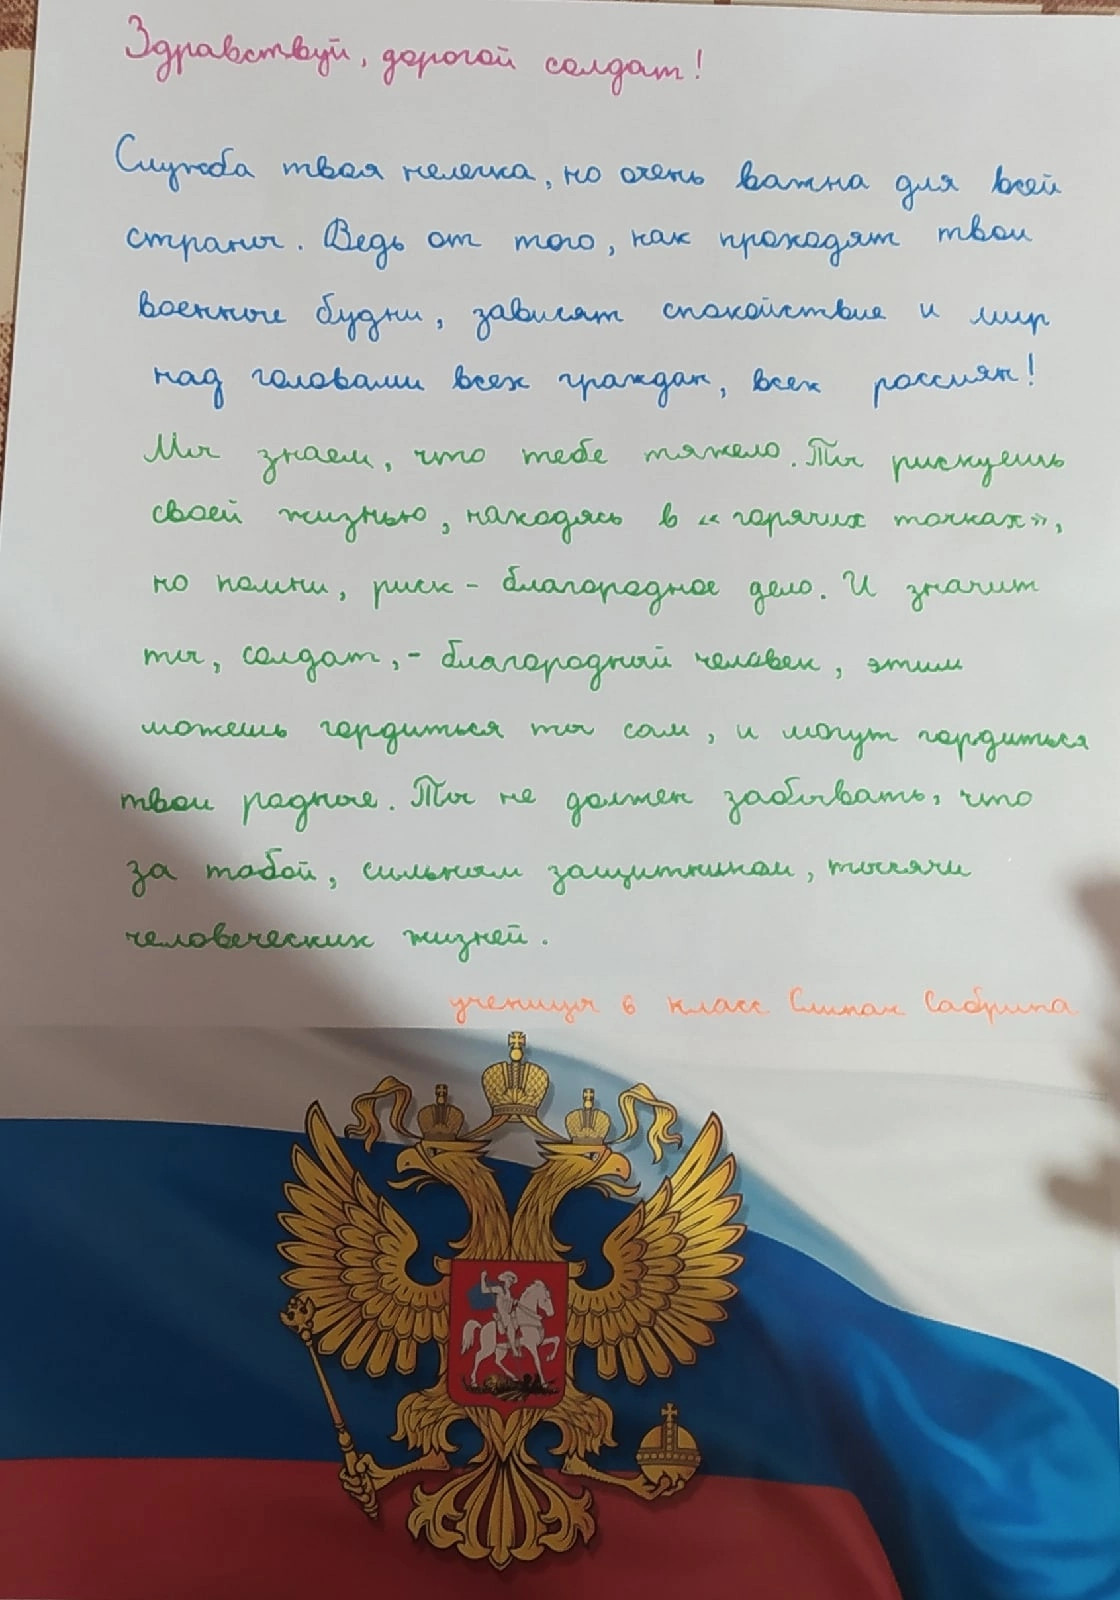 Здравствуй, дорогой солдат!
Служба твоя нелегка, но очень важна для всей
страны. Ведь от того, как проходят твои
военные будни, зависят спокойствие и мир
над головами всех граждан, всех россиян!
Мы знаем, что тебе тяжело. Ты рискуешь
своей жизнью, находясь в «горячих точках»,
но помни, риск - благородное дело. И значит
ты, солдат, - благородный человек, этим
можешь гордиться ты сам, и могут гордиться
твои родные. Ты не должен забывать, что
за тобой, сильным защитником, тысячи
человеческих жизней.
ученицы 6 класс Слипак Сабрина